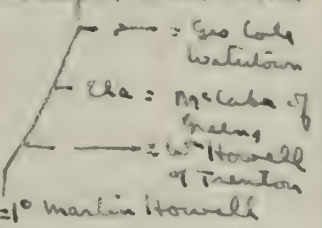 = Geo Cole
Watertown
Eba = McCabe of
Greene
= Wm Howell
of Trenton
=1° Martin Howell